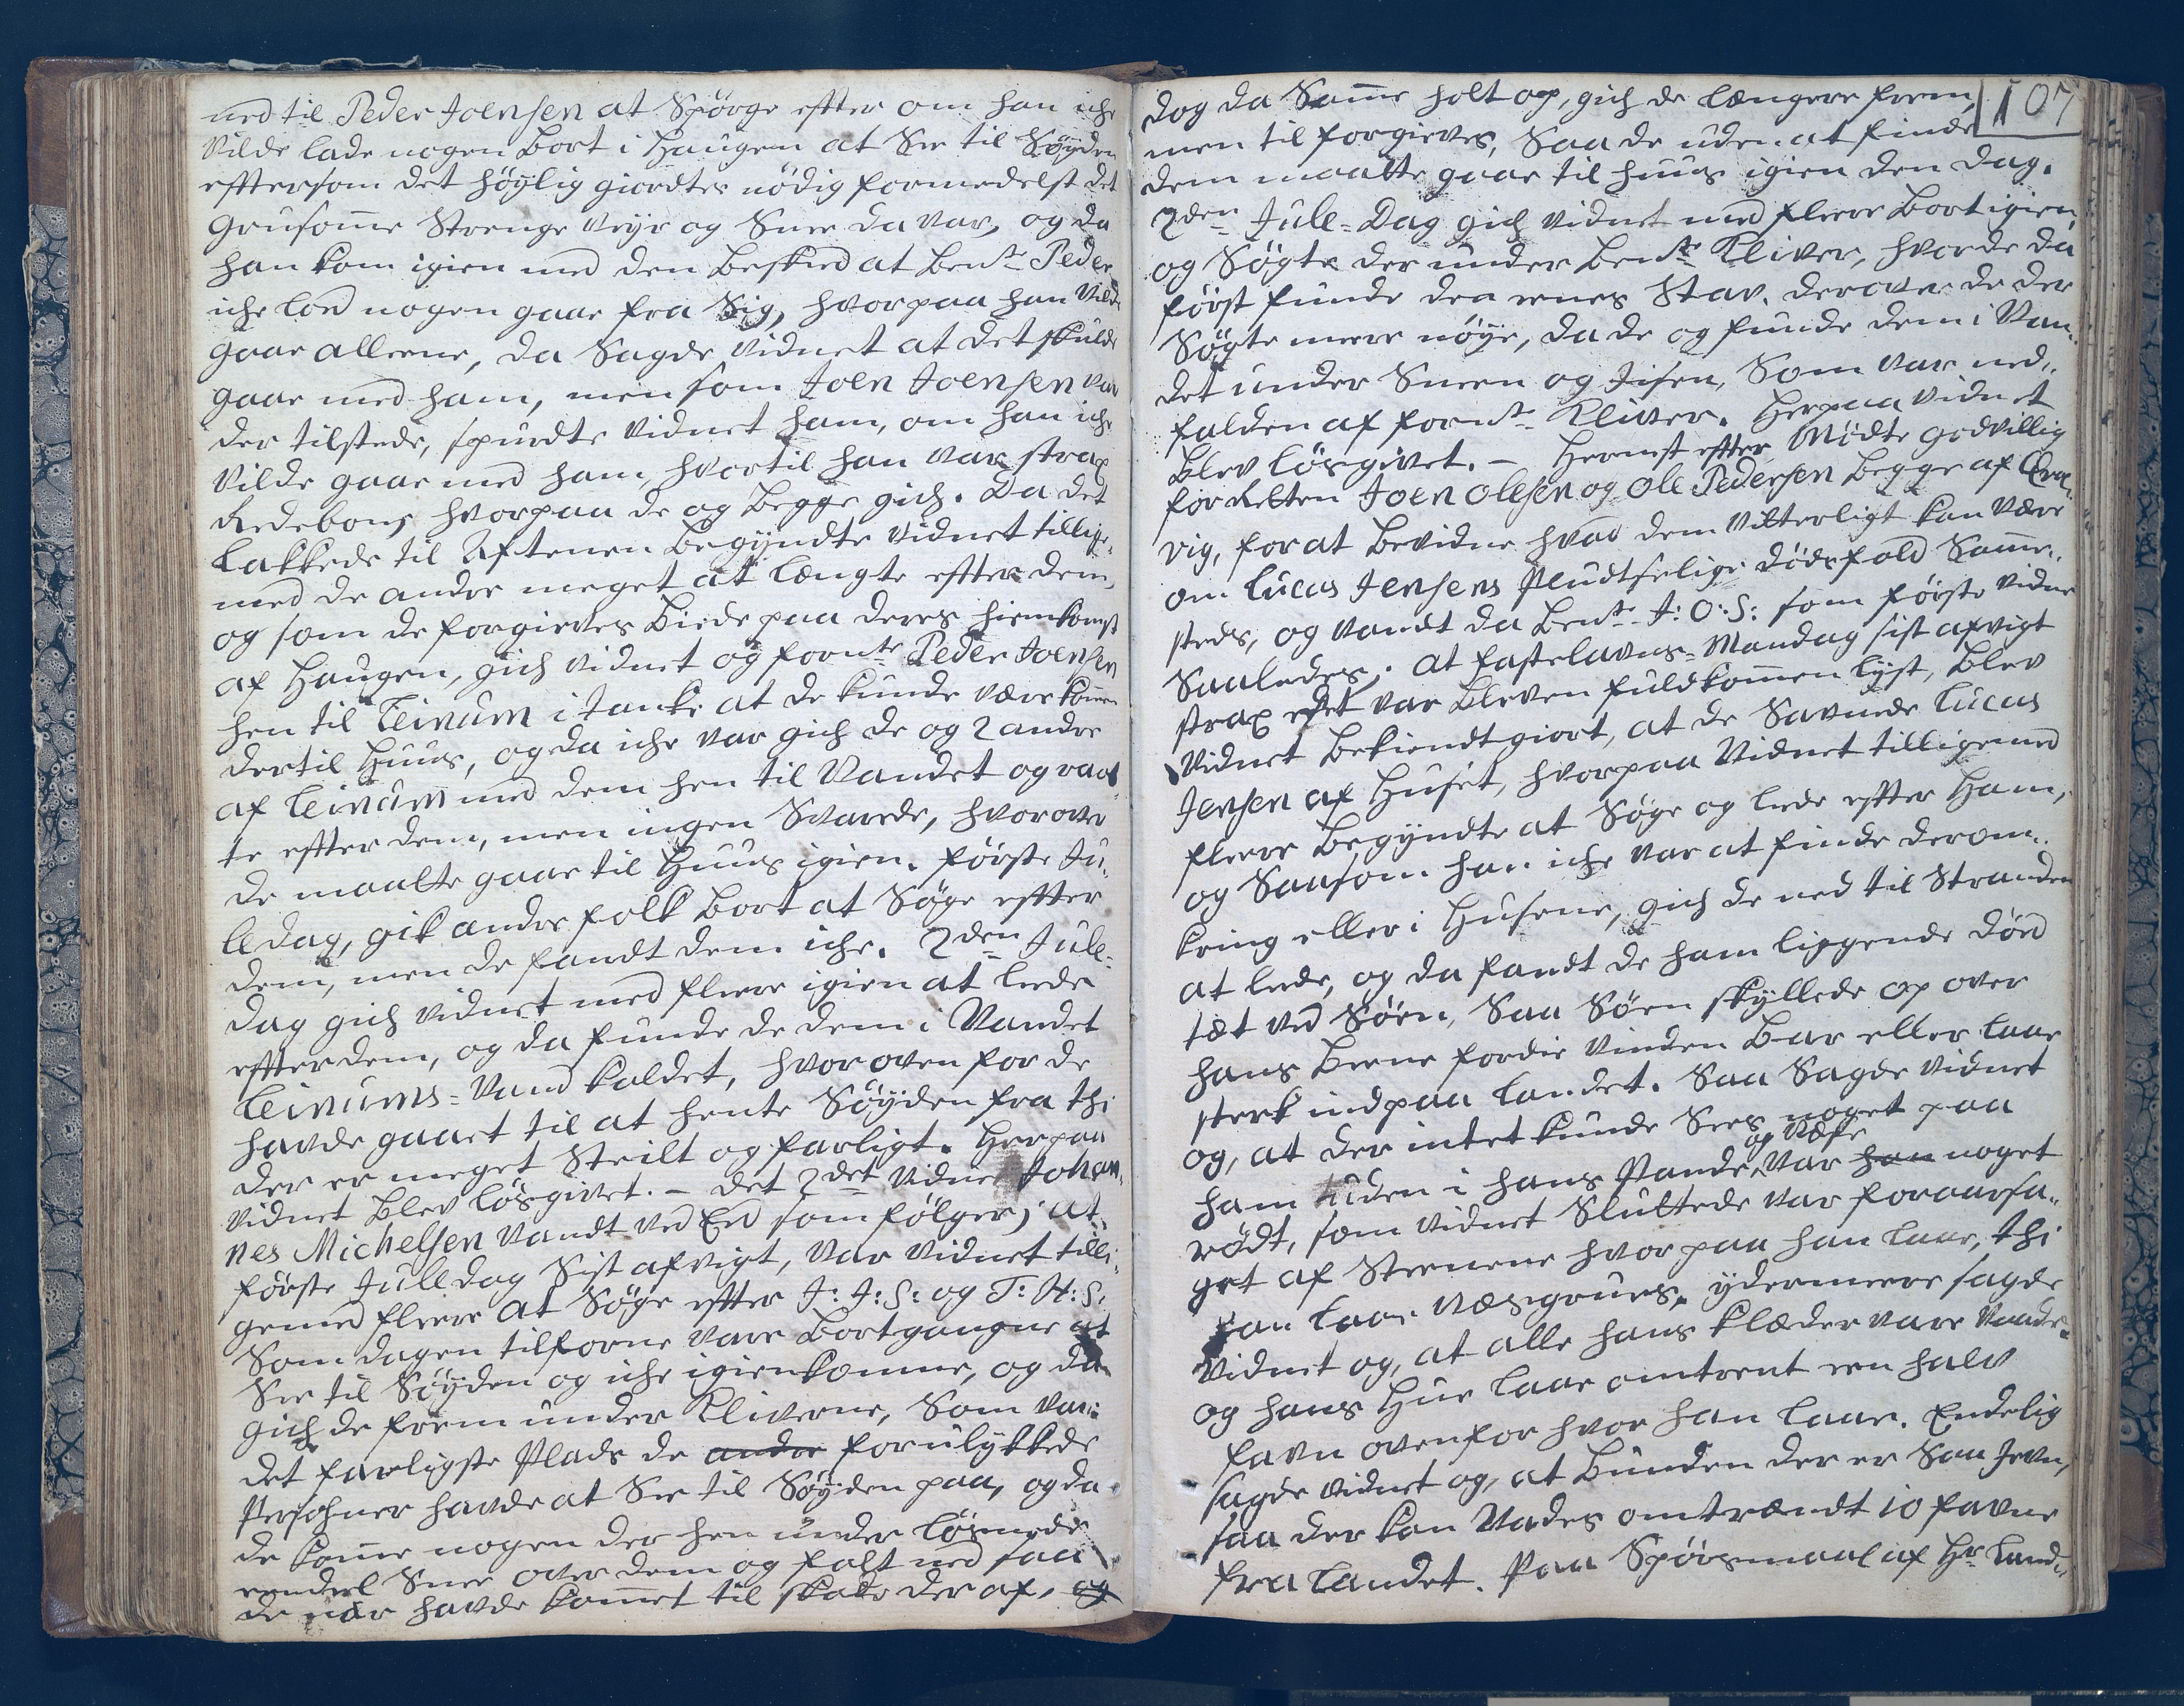 ned til Peder Joensen at Spörge efter om han iche
Vilde lade nogen Bort i Haugen at See til Söyden
efftersom det höylig giordtes nödig formedelst det
Grusome Strenge Veyr og Snee da var, og da
han kom igien med den Beskeed at Bemte Peder
iche lod nogen gaae fra Sig, hvorpaa han Vilde
gaae alleene, da Sagde Vidnet at det skulde
gaae med ham, men som Joen Joensen var
der tilstede, spurdte Vidnet ham, om han iche
Vilde gaae med ham, hvortil han var strax
Redebon, hvorpaa de og Begge gich. Da det
Lakkede til Aftenen Begyndte Vidnet tillige
med de andre meget at længte effter dem,
og som de forgieves Biede paa deres hiemkomst
af Haugen, gich Vidnet og fornte Peder Joensen
hen til Leinum i tanke at de kunde være komen
dertil Huus, og da iche var gich de og 2 andre
af Leinum med dem hen til Vandet og raab
te effter dem, men ingen Svarede, hvorover
de maatte gaae til Huus igien. Förste Ju„
ledag, gik andre folk Bort at Söge effter
dem, men de fandt dem iche. 2den Jule=
dag gich Vidnet med fleere igien at leede
effter dem, og da funde de dem i Vandet
Leinums=Vand kaldet, hvor oven for de
havde gaaet til at hente Söyden fra thi
der er meget Steilt og farligt. Herpaa
Vidnet Blev lösgivet. – Det 2det Vidne Johan„
nes Michelsen Vandt ved Eed som fölger; at
förste Julledag Sist afvigt, var Vidnet tilli„
gemed fleere at Söge effter J: J: S: og T: H: S:
Som dagen tilforne vare Bortgangne at
See til Söyden og iche igienkomne, og da
gich de frem under Kliverne, Som var
det farligste Plads de andre forulykkede
Persohner havde at See til Söyden paa, og da
de kome nogen der hen under lösnede
eendeel Snee over dem og falt ned saa
de nær havde komet til skade der af, og
107
dog da Same holt op, gich de længere frem,
men til forgieves, Saa de uden at finde
dem maatte gaae til huus igien den dag.
2den Jule=Dag gich Vidnet med fleere Bort igien
og Sögte der under Bemte Kliver, hvor de da
först funde den eenes Stav, derover de der
Sögte meere nöye, da de og funde dem i Van„
det under Sneen og Jisen, Som var ned„
falden af fornte Kliver. Herpaa Vidnet
Blev lösgivet. – Hernest effter Mödte godvillig
for Retten Joen Olesen og Ole Pedersen Begge af
vig, for at Bevidne hvad dem Vitterligt kan Være
om Lucas Jensens Pludtselige dödsfald Same„
steds, og Vandt da Bemte J: O: S: som förste Vidne
Saaledes; at Fastelavns=Mandag sist afvigt
strax det var Bleven fuldkomen lyst, Blev
Vidnet Bekiendtgiort, at de Savnede Lucas
Jensen af Huset, hvorpaa Vidnet tilligemed
fleere Begyndte at Söge og leede effter Ham,
og Saasom han iche var at finde derom„
kring eller i Husene, gich de ned til Stranden
at leede, og da fandt de ham liggende död
tæt ved Söen, Saa Söen skyllede op over
hans Beene fordie Vinden Bar eller laae
sterk ind paa Landet. Saa Sagde Vidnet
og, at der intet kunde Sees noget paa
ham uden i hans Pande og Næse var han noget
rödt, som Vidnet Sluttede var foraarsa„
get af Steenene hvorpaa han laae, thi
han laae næsegruus, ydermeere sagde
Vidnet og, at alle hans klæder vare Vaade
og hans Hue laae omtrent een halv
favn ovenfor hvor han laae. Endelig
sagde Vidnet og, at Bunden der er Saa Jevn,
saa der kan Vades omtrændt 10 favne
fra Landet. Paa Spörsmaal af Hr Land„